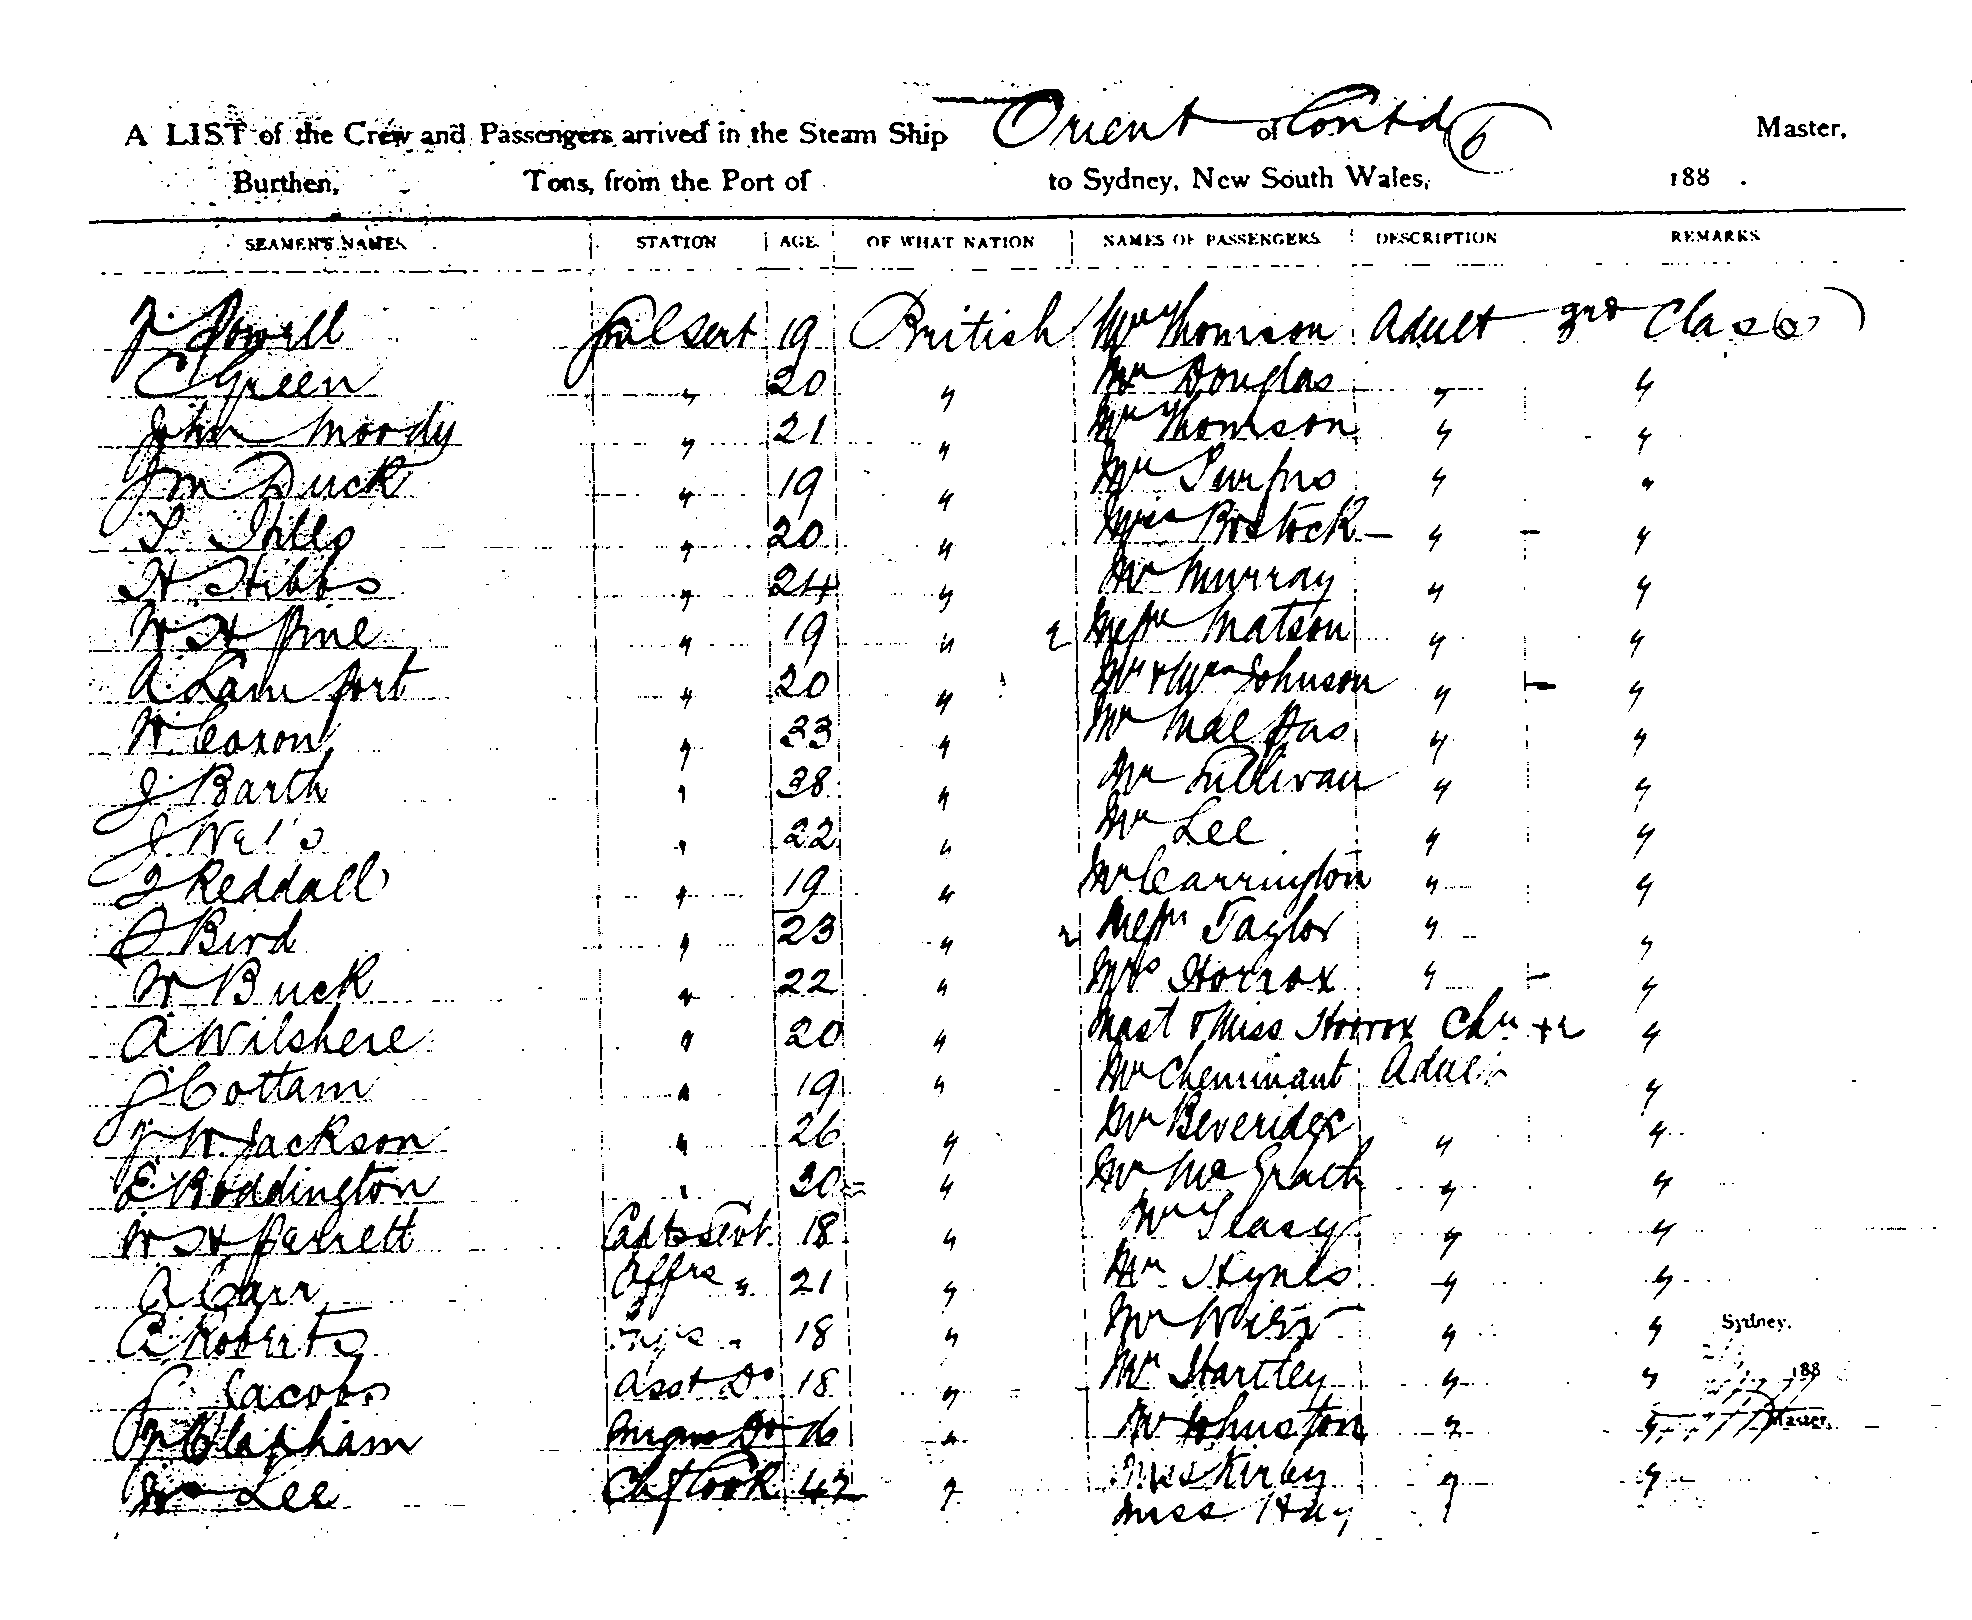 A LIST of the Crew and Passengers arrived in the Steam Ship Orient of Contd 6 Master,
Burthen, Tons, from the Port of to Sydney, New South Wales, 188 .
SEAMEN'S NAMES STATION AGE. OF WHAT NATION NAMES OF PASSENGERS DESCRIPTION REMARKS
J. Powell 19 British Mr Thomson Adult 3rd Class
C Green " 20 " Mr Douglas " "
John Moody " 21 " Mr Thomson " "
Jm Duck " 19 " Mr " "
20 " Bostock - " - "
H. Stibbs " 24 " Mr Murray " "
W H Pine " 19 " 2 Messrs Matson " "
A. Lamport " 20 " Mr & Mrs Johnson " - "
W. Coxon " 33 " Mr Malpas " "
J. Barth " 38 " Mr Sullivan " "
J. " 22 " Mr Lee " "
Reddall " 19 " Mr Carrington " "
Bird " 23 " 2 Messrs Taylor " "
W Buck " 22 " Mrs Horrox " - "
A Wilshere " 20 " Mast & Miss Horrox Chn "
J Cottam " 19 " Mr Cheminant Adult "
J. W. Jackson " 26 " Mr Beveridge " "
E. Boddington " 20 " Mr McGrath " "
W H Parrett Capts Servt 18 " Mr " "
A Carr Offrs " 21 " Mr Hynes " "
A Roberts " 18 " Mr " " Sydney,
Jacobs Asst Do 18 " Mr Hartley " " 188
Clapham Do " Mr Johnston " " Master.
Wm Lee Chf Cook 42 " Kirby " "
Miss Hay "